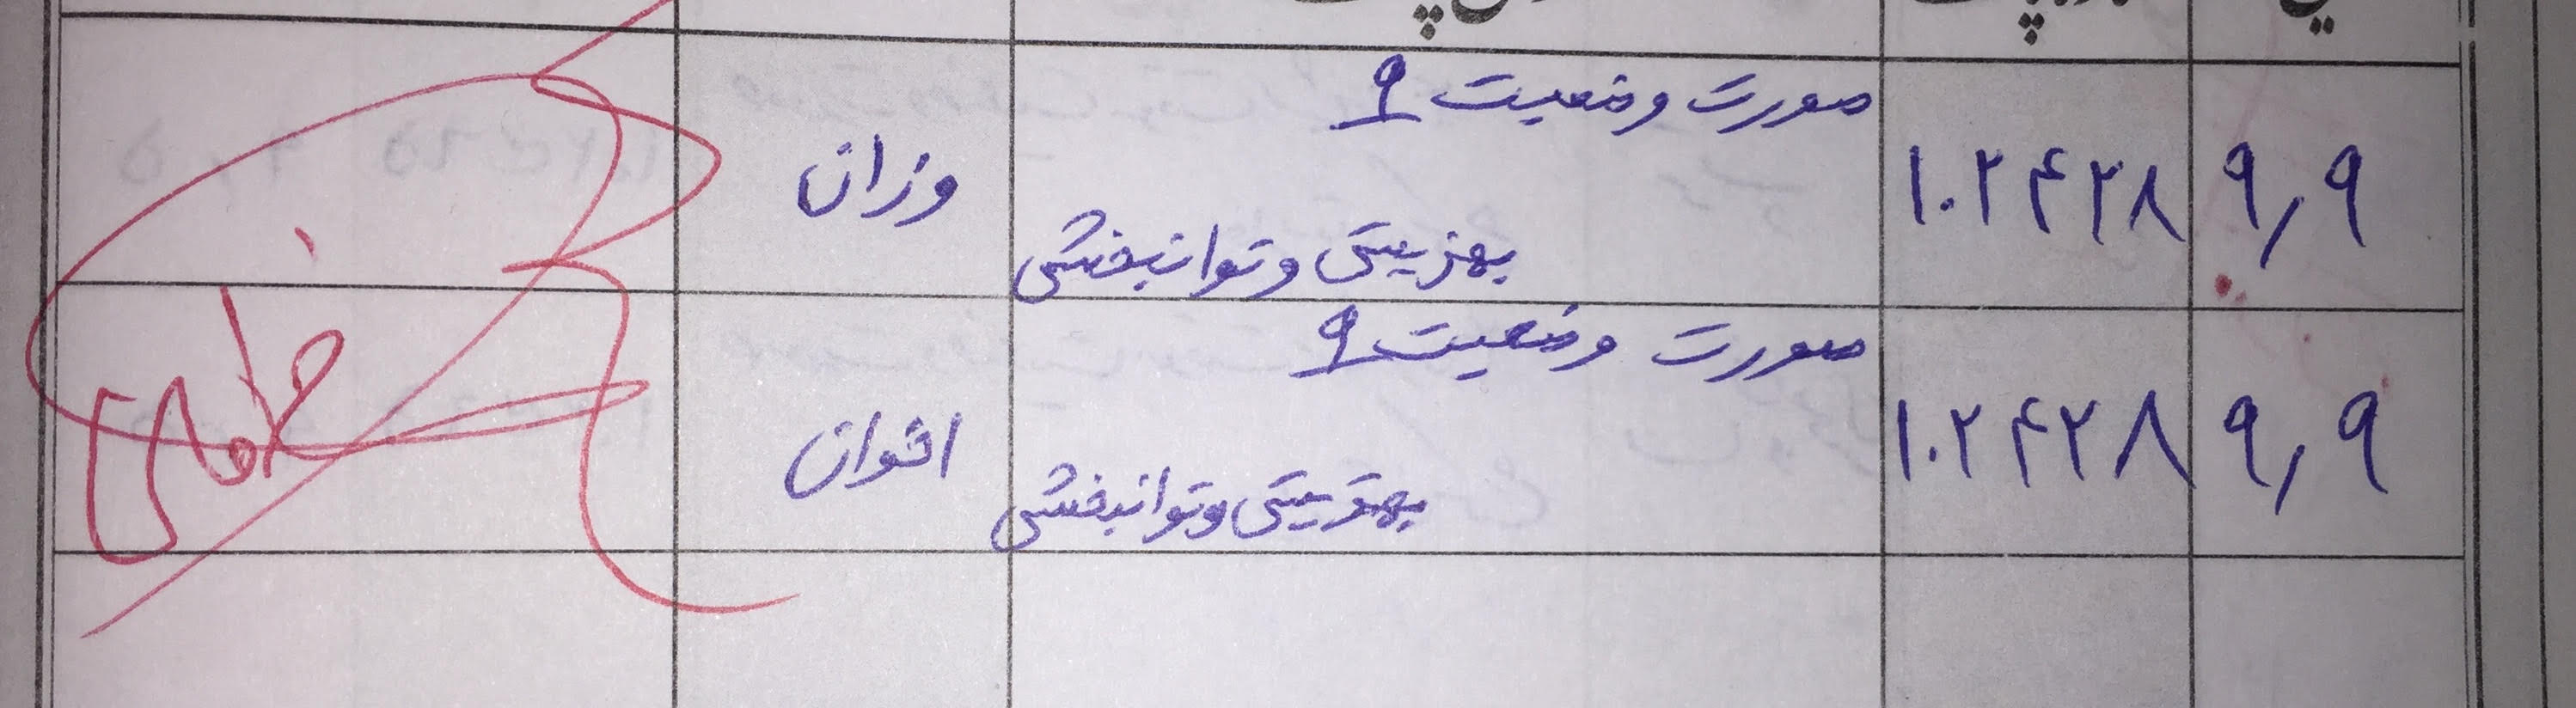 ۹,۹ ۱۰۲۴۲۸ صورت وضعیت ۹ وزان
بهزیستی و توانبخشی
۹,۹ ۱۰۲۴۲۸ صورت وضعیت ۹ اخوان
بهزیستی و توانبخشی